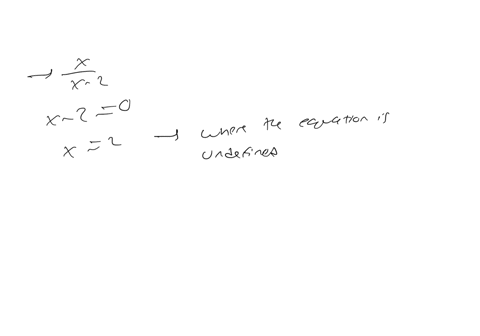 → x/(x-2)
x-2=0
x=2 → where the equation is
undefines